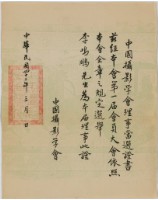 中國攝影學會理事當選證書
前經本會第一屆會員大會依照
本會会章之規定選舉
李鳴鵰先生為本屆理事此證
中國攝影學會
中華民國四十二年三月　日